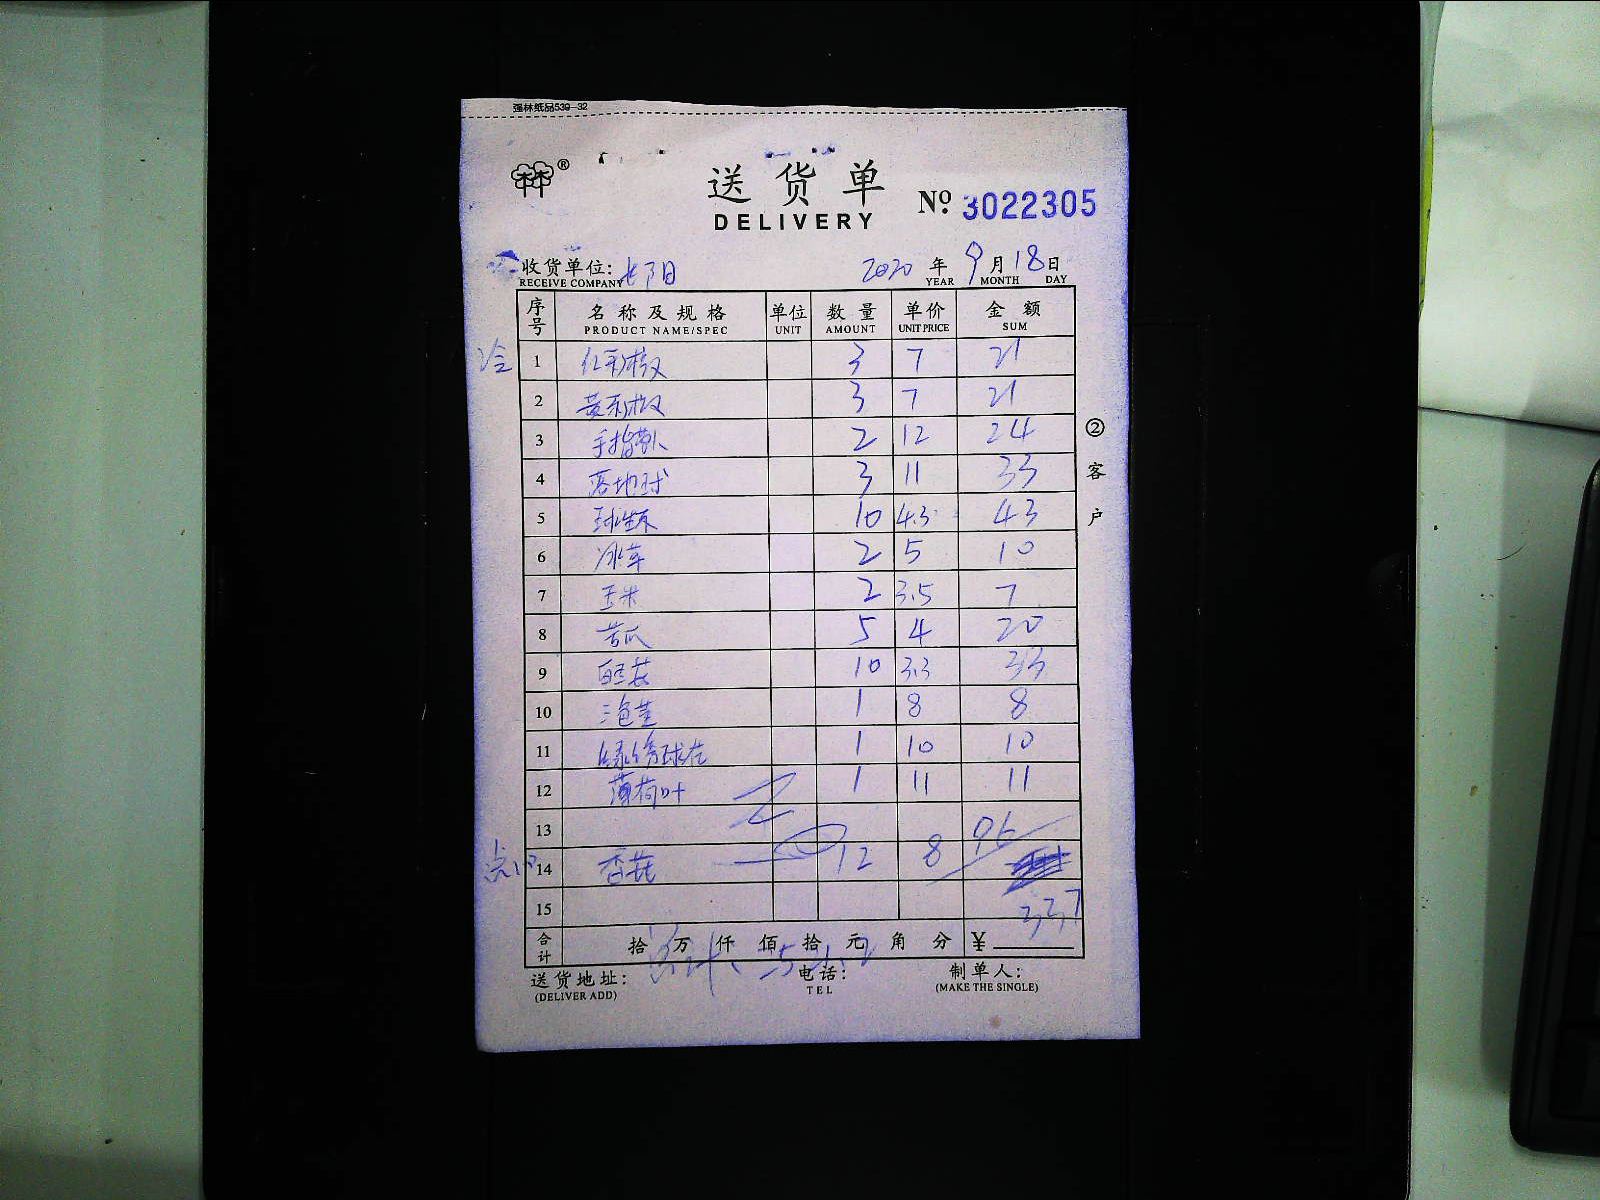 强林纸品539-32
林®
送货单
DELIVERY
№ 3022305
收货单位: 2020 年 9 月 18 日
RECEIVE COMPANY YEAR MONTH DAY
序号 名称及规格 单位 数量 单价 金额
PRODUCT NAME/SPEC UNIT AMOUNT UNIT PRICE SUM
冷 1 红彩椒 3 7 21
2 黄彩椒 3 7 21
3 手指萝卜 2 12 24
4 3 11 33
5 球生菜 10 4.3 43
6 冰草 2 5 10
7 玉米 2 3.5 7
8 苦瓜 5 4 20
9 10 3.3 33
10 1 8 8
11 绿绣球花 1 10 10
12 薄荷叶 1 11 11
13
点心 14 香菇 12 8 96
15 337
合计 拾 万 仟 佰 拾 元 角 分 ¥
总计:
送货地址: 电话: 制单人:
(DELIVER ADD) TEL (MAKE THE SINGLE)
②客户